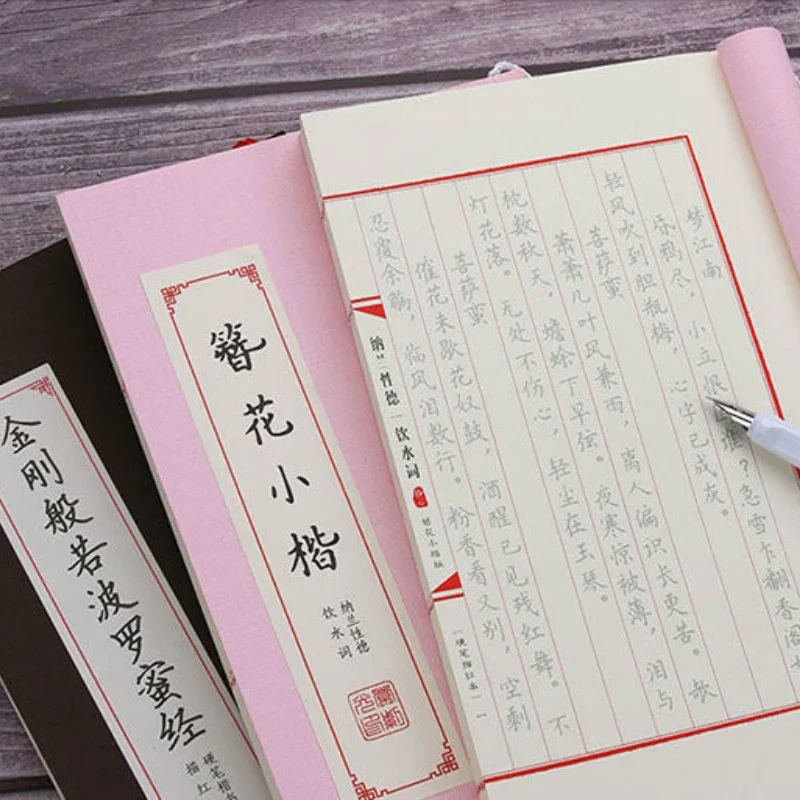 梦江南
昏鸦尽，小立恨谁？急雪乍翻香
轻风吹到胆瓶梅，心字已成灰。
菩萨蛮
萧萧几叶风兼雨，离人偏识长更苦。欹
枕数秋天，蟾蜍下早弦。夜寒惊被薄，泪与
灯花落。无处不伤心，轻尘在玉琴。
菩萨蛮
催花未歇花奴鼓，酒醒已见残红舞。不
忍覆余觞，临风泪数行。粉香看又别，空剩
纳兰性德|饮水词
簪花小楷版
硬笔描红本
簪花小楷
纳兰性德
饮水词
金刚般若波罗蜜经
硬笔楷书
描红